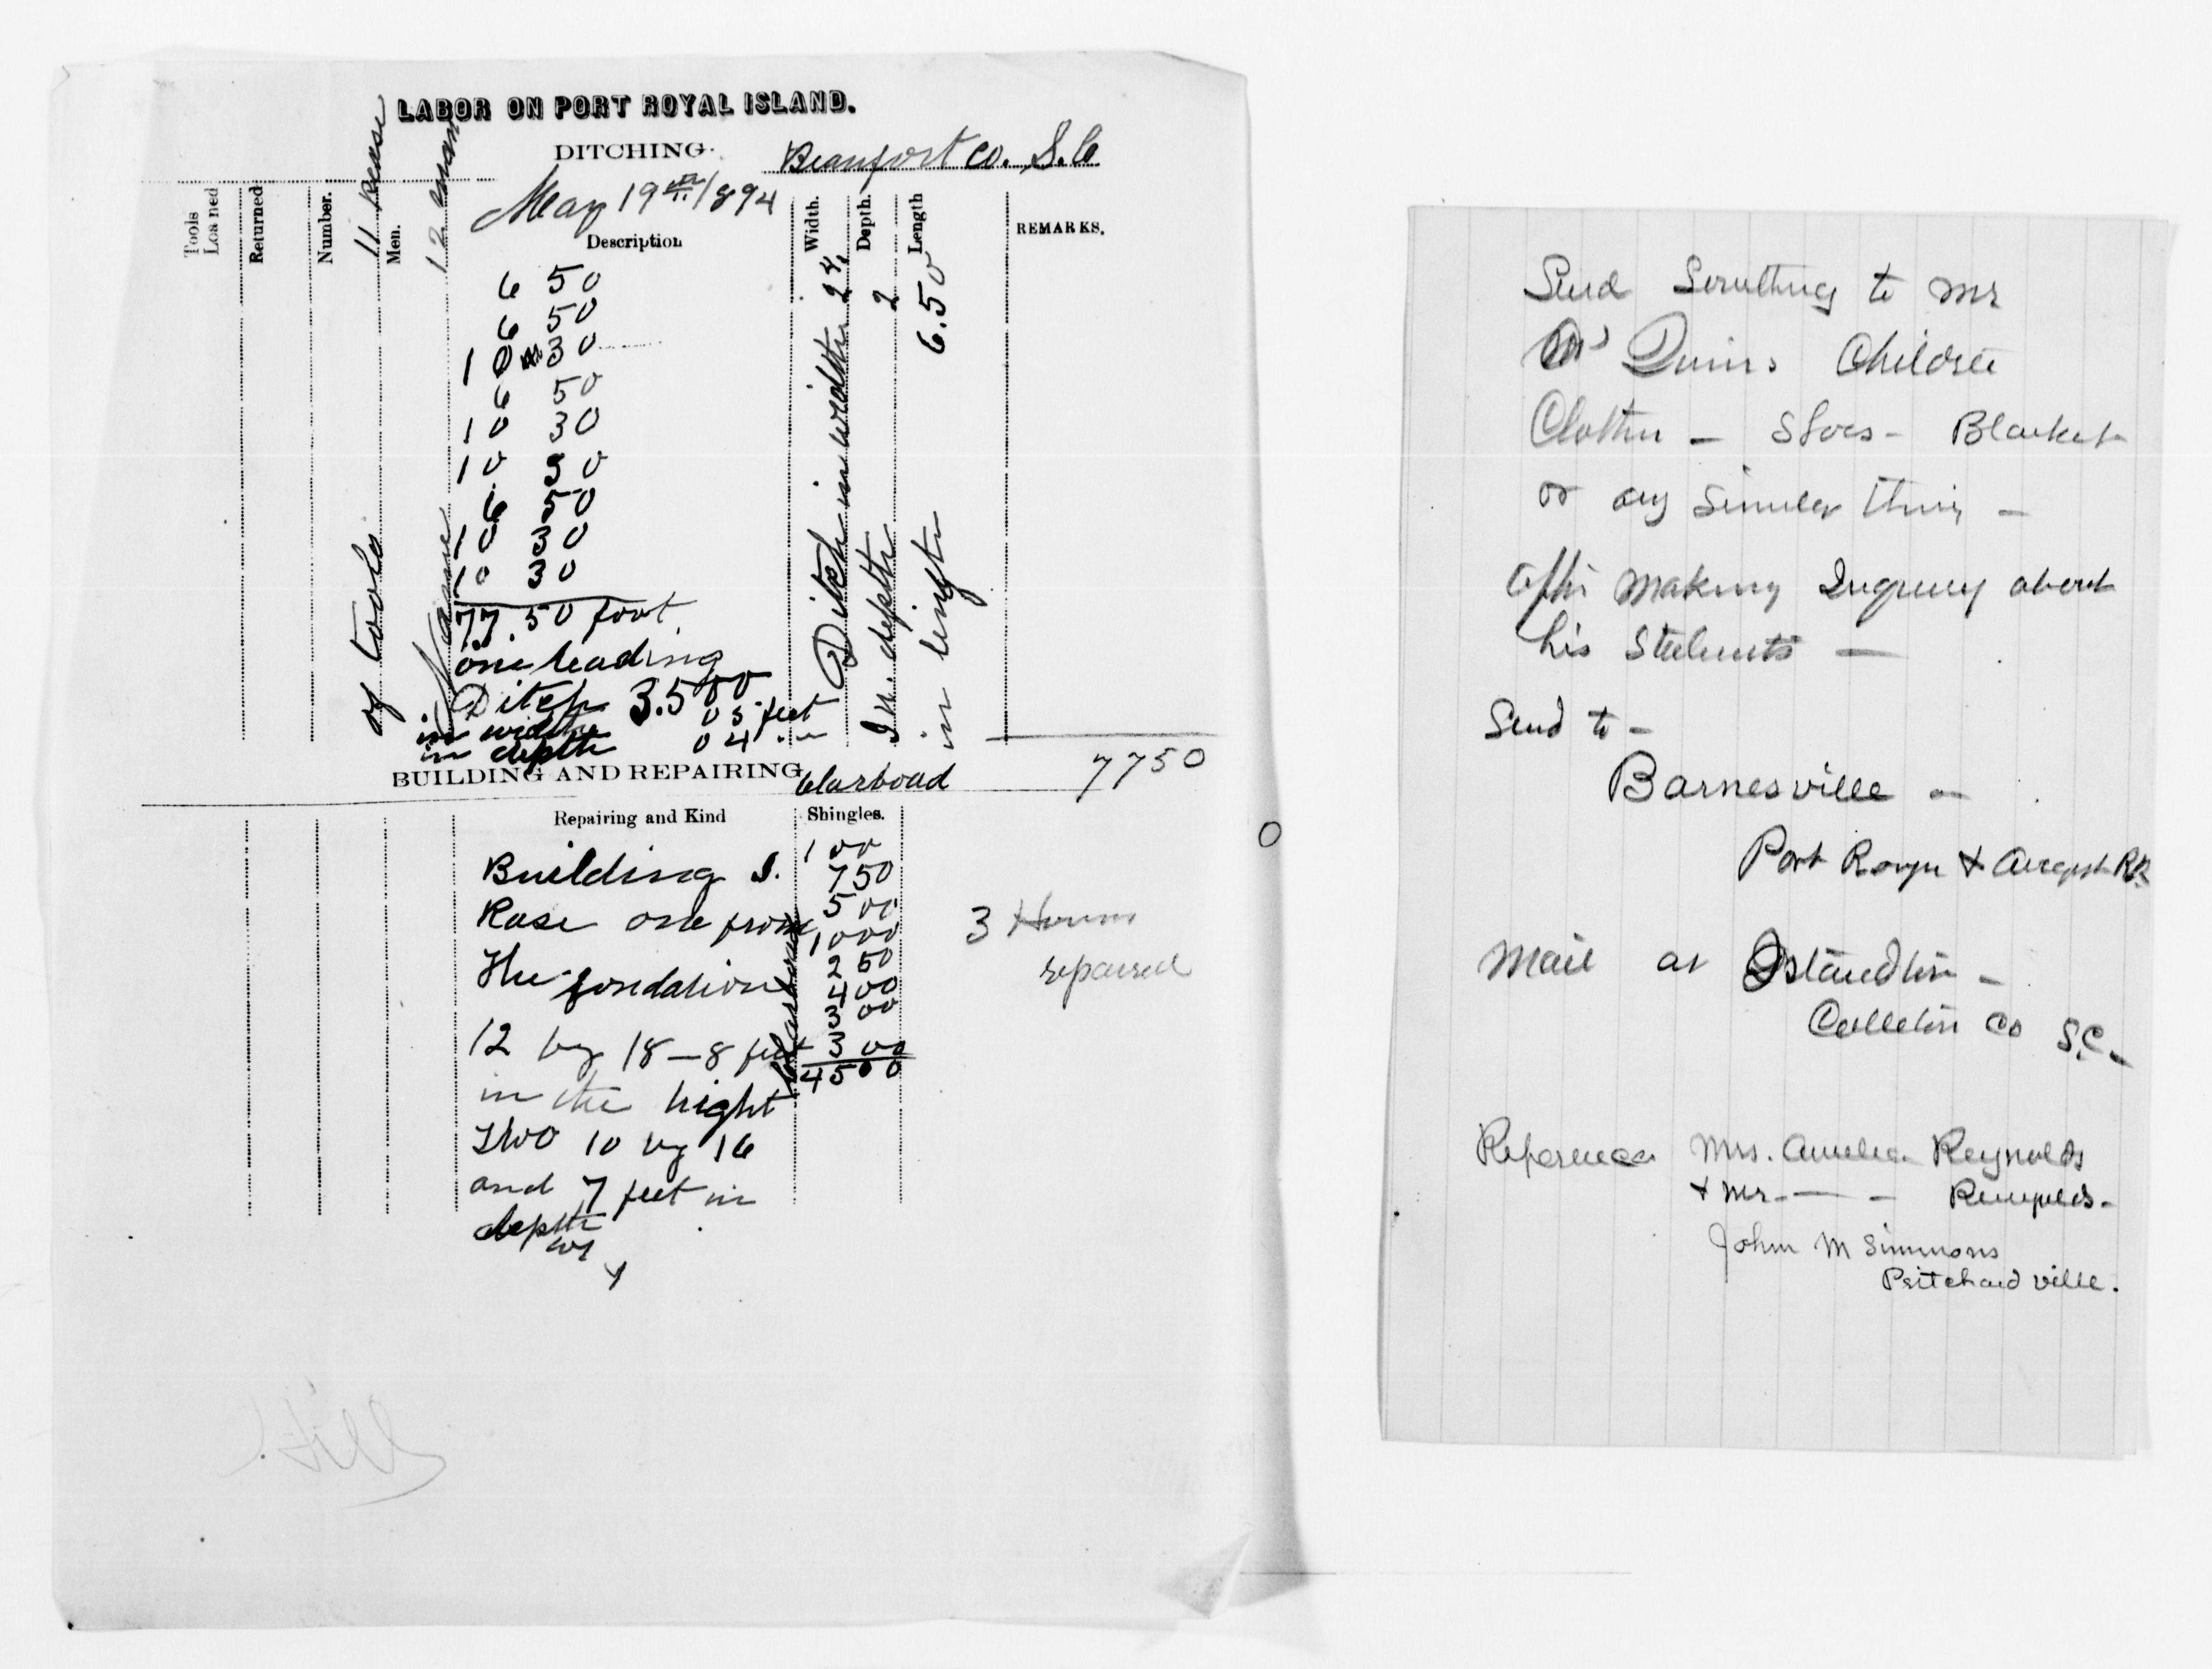 LABOR ON PORT ROYAL ISLAND.
DITCHING.
Beaufort co. S.C
May 19th. 1894
Tools Loaned
Returned
Number.
11 Pease
Men.
12 man
Description
Width.
Depth.
Length
REMARKS.
6 50
6 50
10 30
6 50
10 30
10 30
6 50
10 30
10 30
77.50 foot
one leading
Ditch 3.500
in width 05 feet
in depth 04 "
of tools
Name
Ditch in width 2 4.
In. depth 2
in lingth 6.50
7750
BUILDING AND REPAIRING
Clarboad
Repairing and Kind
Shingles.
Building 1.
Rase one from
The fondation
12 by 18 – 8 feet
in the hight
Two 10 by 16
and 7 feet in
depth
100
750
500
1000
250
400
300
300
4500
3 Houses
repaired
Send Somthing to Mr
Quins Children
Clothes – Shoes – Blankets
or any similar thing –
after making Inquiry about
his Statements –
Send to –
Barnesville –
Port Royal & Augusta RR
Mail at Islandton –
Colleton Co S.C.
References Mrs. Amelia Reynolds
& Mr. — – Reynolds –
John M Simmons
Pritchardville.